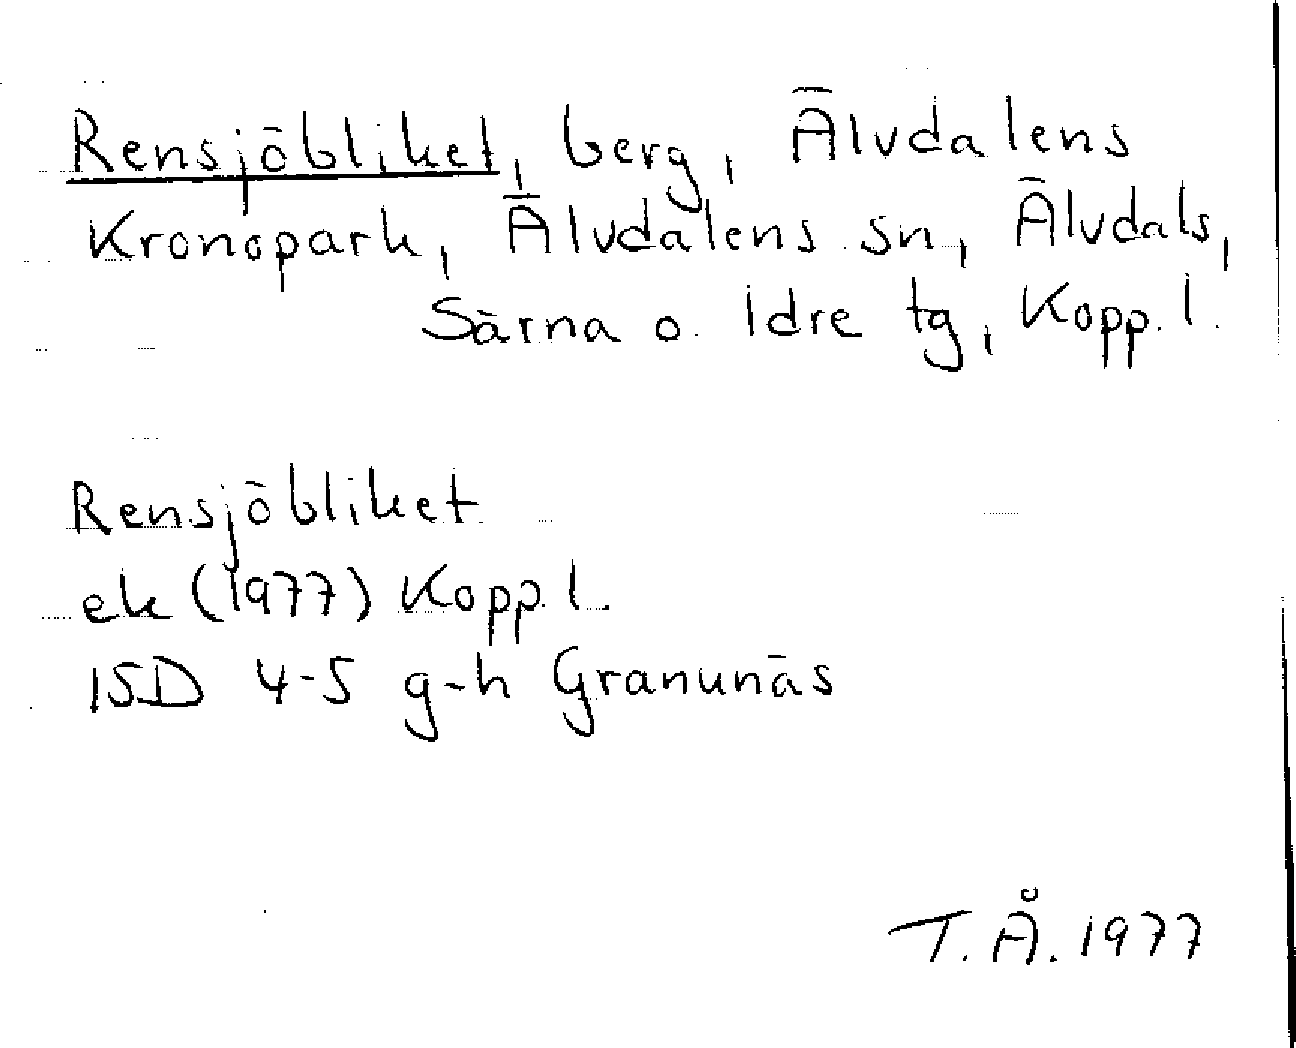 Rensjöbliket, berg, Älvdalens
Kronopark, Älvdalens sn, Älvdals,
Särna o. Idre tg, Kopp. l.
Rensjöbliket
ek (1977) Kopp l.
15D 4-5 g-h Granunäs
T. Å. 1977